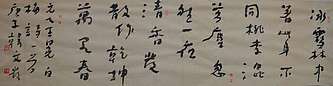 冰雪林中
著此身不
同桃李混
芳塵忽
然一夜
清香發
散作乾坤
萬里春
梅詩一首